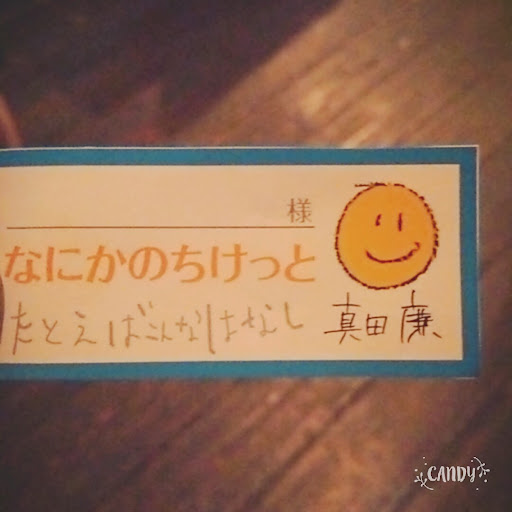 様
なにかのちけっと
たとえばこんなはなし
真田廉
CANDY